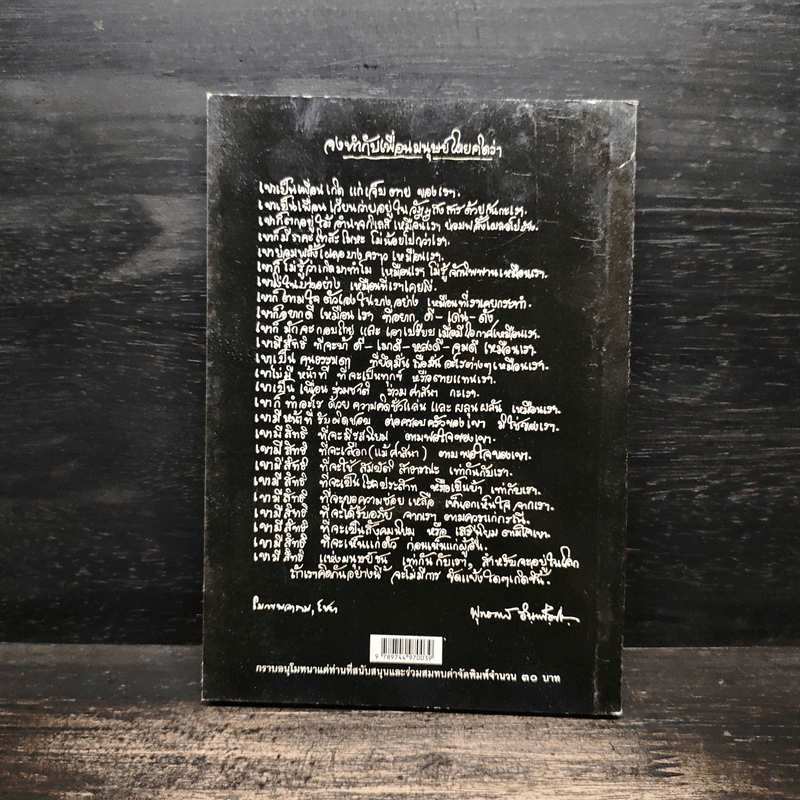 จงทำกับเพื่อนมนุษย์โดยคิดว่า
เขาเป็นเพื่อน เกิด แก่ เจ็บ ตาย ของเรา.
เขาเป็นเพื่อน เวียนว่ายอยู่ใน วัฏฏสงสาร ด้วยกันกะเรา.
เขาก็ตกอยู่ใต้ อำนาจกิเลส เหมือนเรา ย่อมพลั้งเผลอไปบ้าง.
เขาก็มี ราคะ โทสะ โมหะ ไม่น้อยไปกว่าเรา.
เขาย่อมพลั้งเผลอบางคราว เหมือนเรา.
เขาก็ ไม่รู้ว่าเกิดมาทำไม เหมือนเรา ไม่รู้จักนิพพานเหมือนเรา.
เขาโง่ในบางอย่าง เหมือนที่เราเคยโง่.
เขาก็ ตามใจ ตัวเองในบางอย่าง เหมือนที่เราเคยกระทำ.
เขาก็อยากดี เหมือนเรา ที่อยาก ดี - เด่น - ดัง
เขาก็ มักจะกอบโกย และ เอาเปรียบ เมื่อมีโอกาสเหมือนเรา.
เขามี สิทธิ ที่จะบ้า ดี - เมาดี - หลงดี - จมดี เหมือนเรา.
เขาเป็น คนธรรมดา ที่ยึดมั่น ถือมั่น อะไรต่างๆ เหมือนเรา.
เขาไม่มี หน้าที่ ที่จะเป็นทุกข์ หรือตายแทนเรา.
เขาเป็น เพื่อน ร่วมชาติ ร่วม ศาสนา กะเรา.
เขาก็ ทำอะไร ด้วย ความคิดชั่วแล่น และ ผลุนผลัน เหมือนเรา.
เขามี หน้าที่ รับผิดชอบ ต่อครอบครัวของเขา มิใช่ของเรา.
เขามี สิทธิ ที่จะมีรสนิยม ตามพอใจของเขา.
เขามี สิทธิ ที่จะเลือก (แม้ศาสนา) ตามพอใจของเขา.
เขามี สิทธิ ที่จะใช้ สมบัติ สาธารณะ เท่ากันกับเรา.
เขามี สิทธิ ที่จะเป็น โรคประสาท หรือเป็นบ้า เท่ากับเรา.
เขามี สิทธิ ที่จะขอความช่วยเหลือ เห็นอกเห็นใจ จากเรา.
เขามี สิทธิ ที่จะได้รับอภัย จากเรา ตามควรแก่กรณี.
เขามี สิทธิ ที่จะเป็นสังคมนิยม หรือ เสรีนิยม ตามใจเขา.
เขามี สิทธิ ที่จะเห็นแก่ตัว ก่อนเห็นแก่ผู้อื่น.
เขามี สิทธิ แห่งมนุษย์ชน เท่ากันกับเรา, สำหรับจะอยู่ในโลก
ถ้าเราคิดกันอย่างนี้ จะไม่มีการ ขัดแย้งใดๆ เกิดขึ้น.
โมกขพลาราม, ไชยา พุทธทาส อินทปัญโญ
9 789744 970039
กราบอนุโมทนาแด่ท่านที่สนับสนุนและร่วมสมทบค่าจัดพิมพ์จำนวน ๓๐ บาท